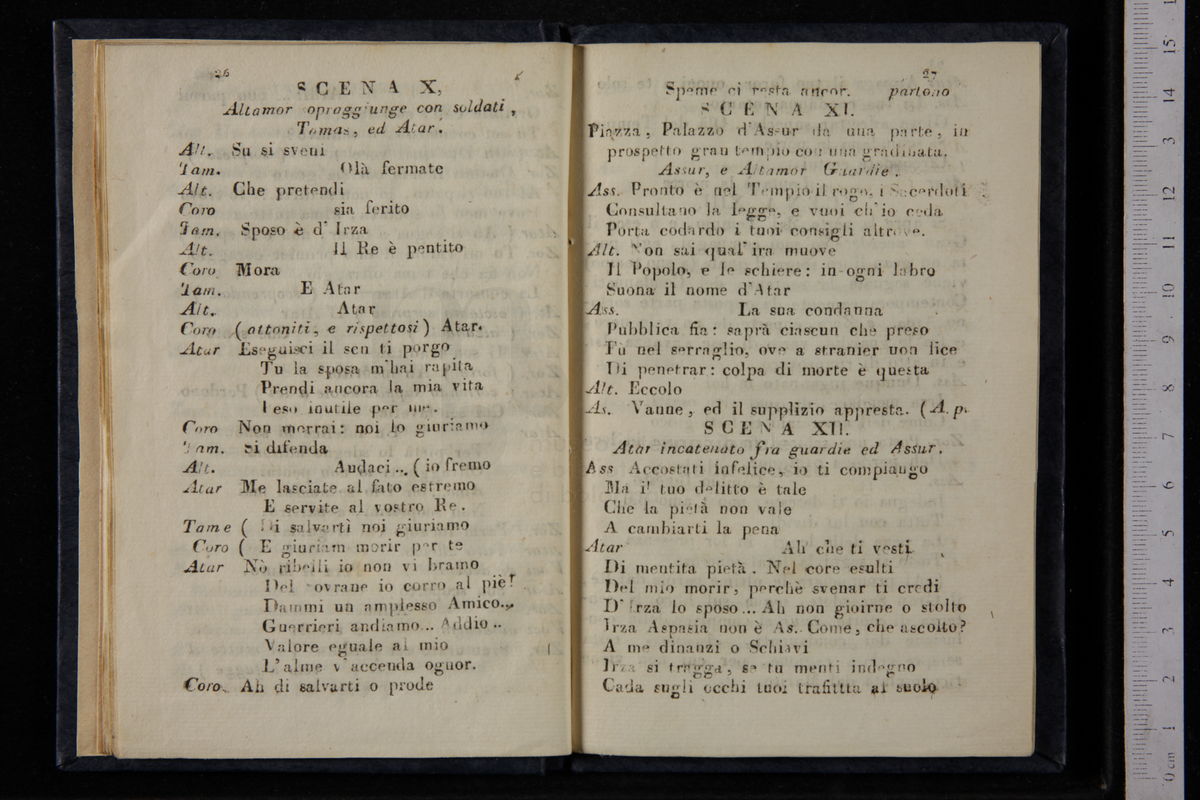 26
SCENA X,
Altamor opraggiunge con soldati,
Tamas, ed Atar.
Alt. Su si sveni
Tam. Olà fermate
Alt. Che pretendi
Coro sia ferito
Tam. Sposo è d' Irza
Alt. Il Re è pentito
Coro Mora
Tam. E Atar
Alt. Atar
Coro (attoniti, e rispettosi) Atar.
Atar Eseguisci il sen ti porgo
Tu la sposa m'hai rapita
Prendi ancora la mia vita
Peso inutile per me.
Coro Non morrai: noi lo giuriamo
Tam. si difenda
Alt. Audaci... (io fremo
Atar Me lasciate al fato estremo
E servite al vostro Re.
Tame ( Di salvarti noi giuriamo
Coro ( E giuriam morir per te
Atar Nò ribelli io non vi bramo
Del sovrane io corro al piè!
Dammi un amplesso Amico...
Guerrieri andiamo... Addio..
Valore eguale al mio
L'alme v'accenda ognor.
Coro. Ah di salvarti o prode
27
Speme ci resta ancor. partono
SCENA XI.
Piazza, Palazzo d'Assur da una parte, in
prospetto gran tempio con una gradinata.
Assur, e Altamor Guardie.
Ass. Pronto è nel Tempio il rogo, i Sacerdoti
Consultano la legge, e vuoi ch'io ceda
Porta codardo i tuoi consigli altrove.
Alt. Non sai qual' ira muove
Il Popolo, e le schiere: in ogni labro
Suona il nome d'Atar
Ass. La sua condanna
Pubblica fia: saprà ciascun che preso
Fù nel serraglio, ove a stranier non lice
Di penetrar: colpa di morte è questa
Alt. Eccolo
As. Vanne, ed il supplizio appresta. (A. p.
SCENA XII.
Atar incatenato fra guardie ed Assur.
Ass Accostati infelice, io ti compiango
Ma il tuo delitto è tale
Che la pietà non vale
A cambiarti la pena
Atar Ah che ti vesti
Di mentita pietà. Nel core esulti
Del mio morir, perchè svenar ti credi
D'Irza lo sposo... Ah non gioirne o stolto
Irza Aspasia non è As. Come, che ascolto?
A me dinanzi o Schiavi
Irza si tragga, se tu menti indegno
Cada sugli occhi tuoi trafittta al suolo